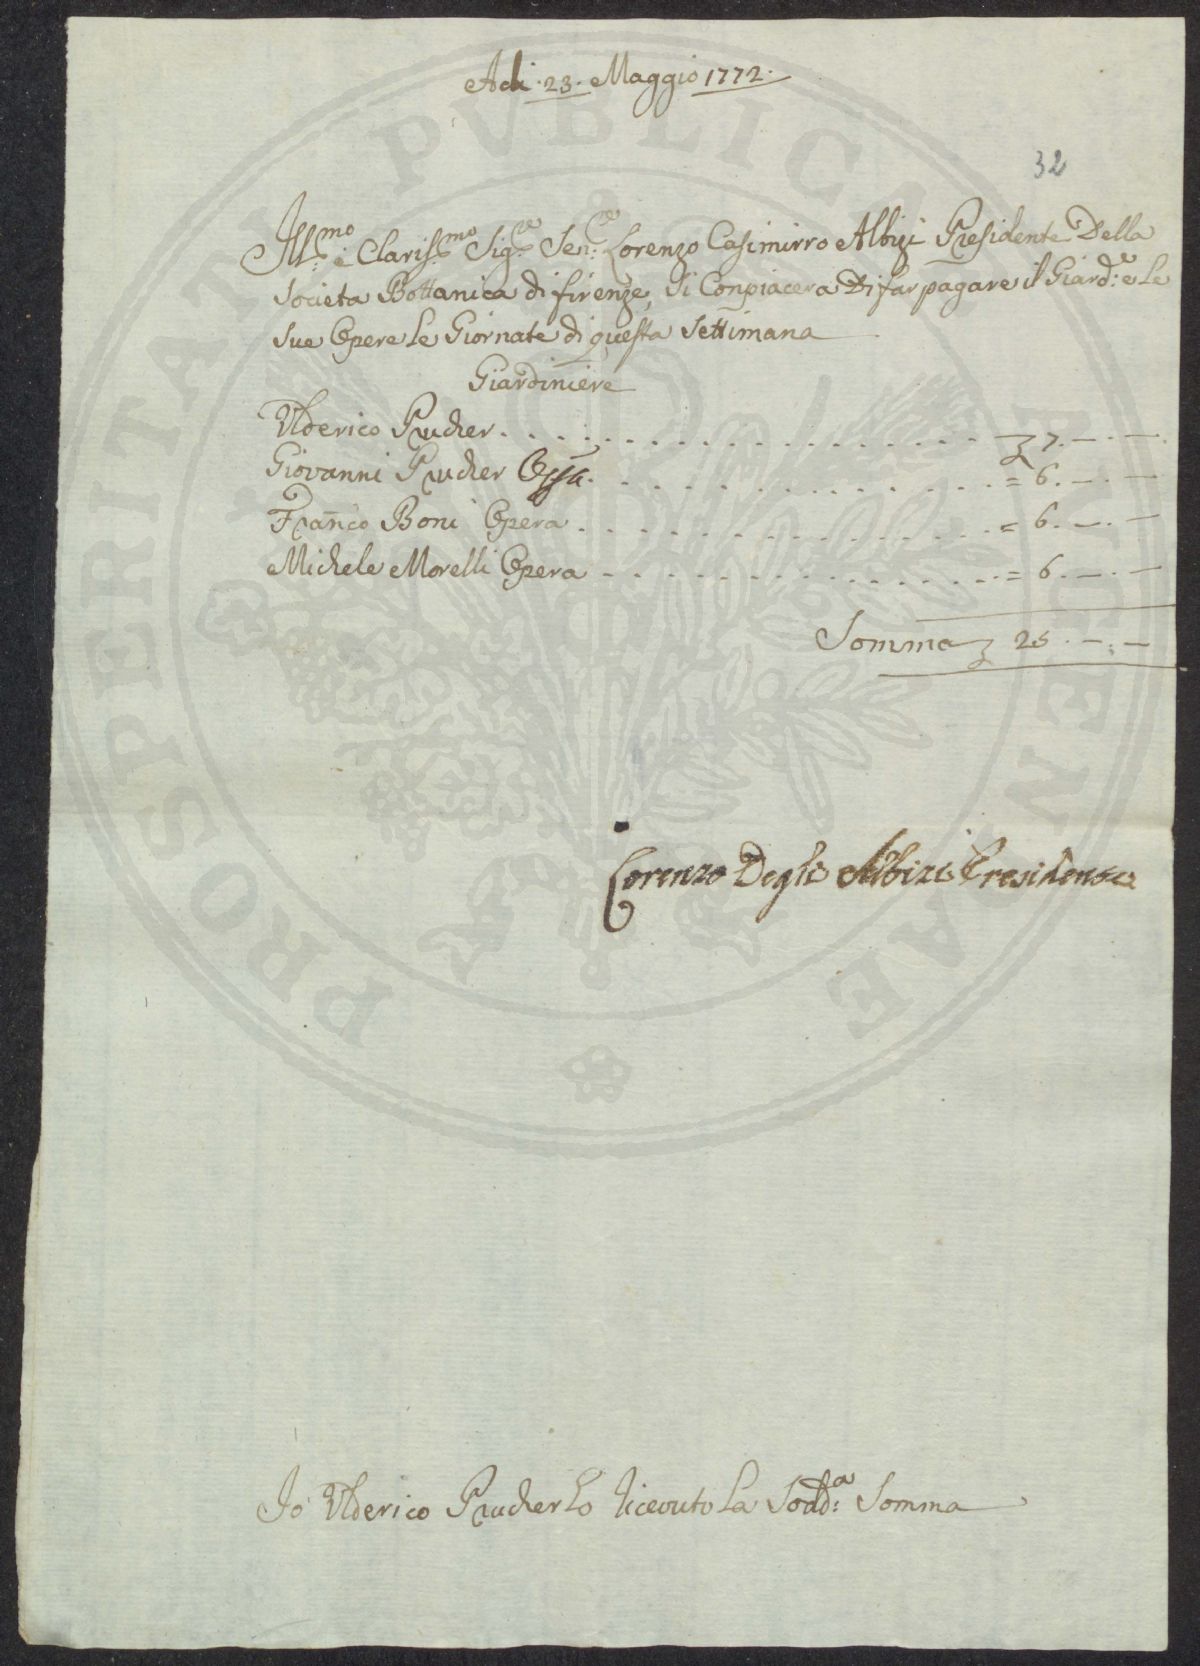 Adi 23. Maggio 1772.
32
Ill:mo e Claris:mo Sig:re Sen:re Lorenzo Casimirro Albizi Presidente Della
Societa Bottanica di firenze, Si Conpiacera Di far pagare il Giard:e e Le
Sue Opere Le Giornate di questa Settimana
Giardiniere
Ulderico Prucher . . . . . . . . . . . . . . . . . . . 7. — . —
Giovanni Prucher Opera . . . . . . . . . . . . . . . = 6. — . —
Franco Boni Opera . . . . . . . . . . . . . . . = 6. — . —
Michele Morelli Opera . . . . . . . . . . . . . . . = 6. — . —
Somma 25. — . —
Lorenzo Degli Albizi Presidente
Io Ulderico Prucher ho ricevuto La Sodd:a Somma
PROSPERITATI PVBLICAE AVGENDAE